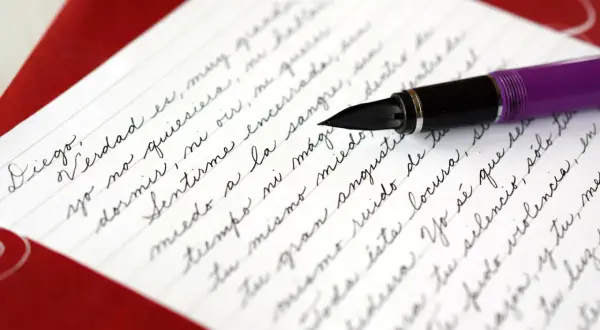 Diego,
Verdad es, muy grande,
yo no quisiera, ni hablar
dormir, ni oir, ni querer
Sentirme encerrada, sin
miedo a la sangre, sin
tiempo ni magia, dentro de
tu mismo miedo, dentro de
tu gran angustia, y en el
mismo ruido de tu
Toda ésta locura, si
pidiera Yo sé que
para tu silencio, sólo tu
Te pido violencia, en
y tu, me
tu luz